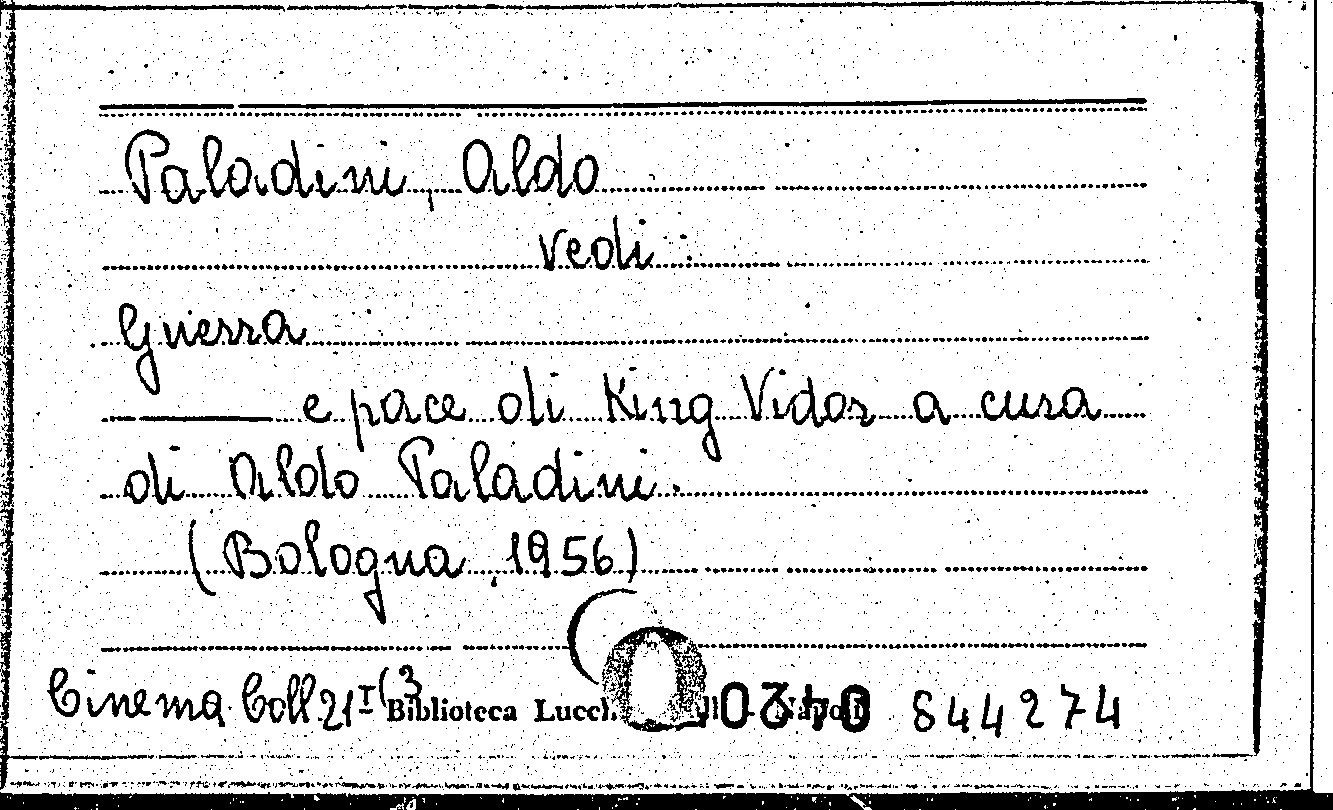 Paladini, Aldo
vedi:
Guerra
——— e pace di King Vidor a cura
di Aldo Paladini.
(Bologna, 1956)
Cinema Coll. 21 I (3 Biblioteca 844274